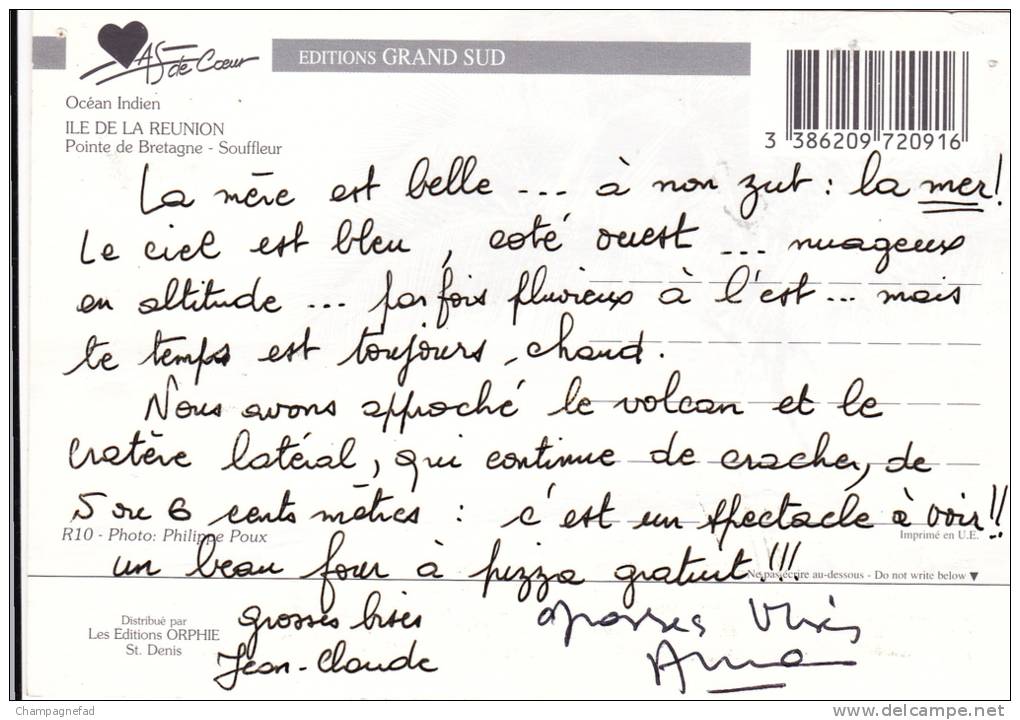 AS de Cœur
EDITIONS GRAND SUD
Océan Indien
ILE DE LA REUNION
Pointe de Bretagne - Souffleur
3 386209 720916
La mère est belle ... à non zut : la mer !
Le ciel est bleu, coté ouest ... nuageux
en altitude ... parfois pluvieux à l'est ... mais
le temps est toujours chaud.
Nous avons approché le volcan et le
cratère latéral, qui continue de cracher, de
5 ou 6 cents mètres : c'est un spectacle à voir !!
R10 - Photo: Philippe Poux
Imprimé en U.E.
un beau four à pizza gratuit !!!
Ne pas écrire au-dessous - Do not write below
Distribué par
Les Editions ORPHIE
St. Denis
grosses bises
Jean-Claude
grosses bises
Champagnefad
www.delcampe.net